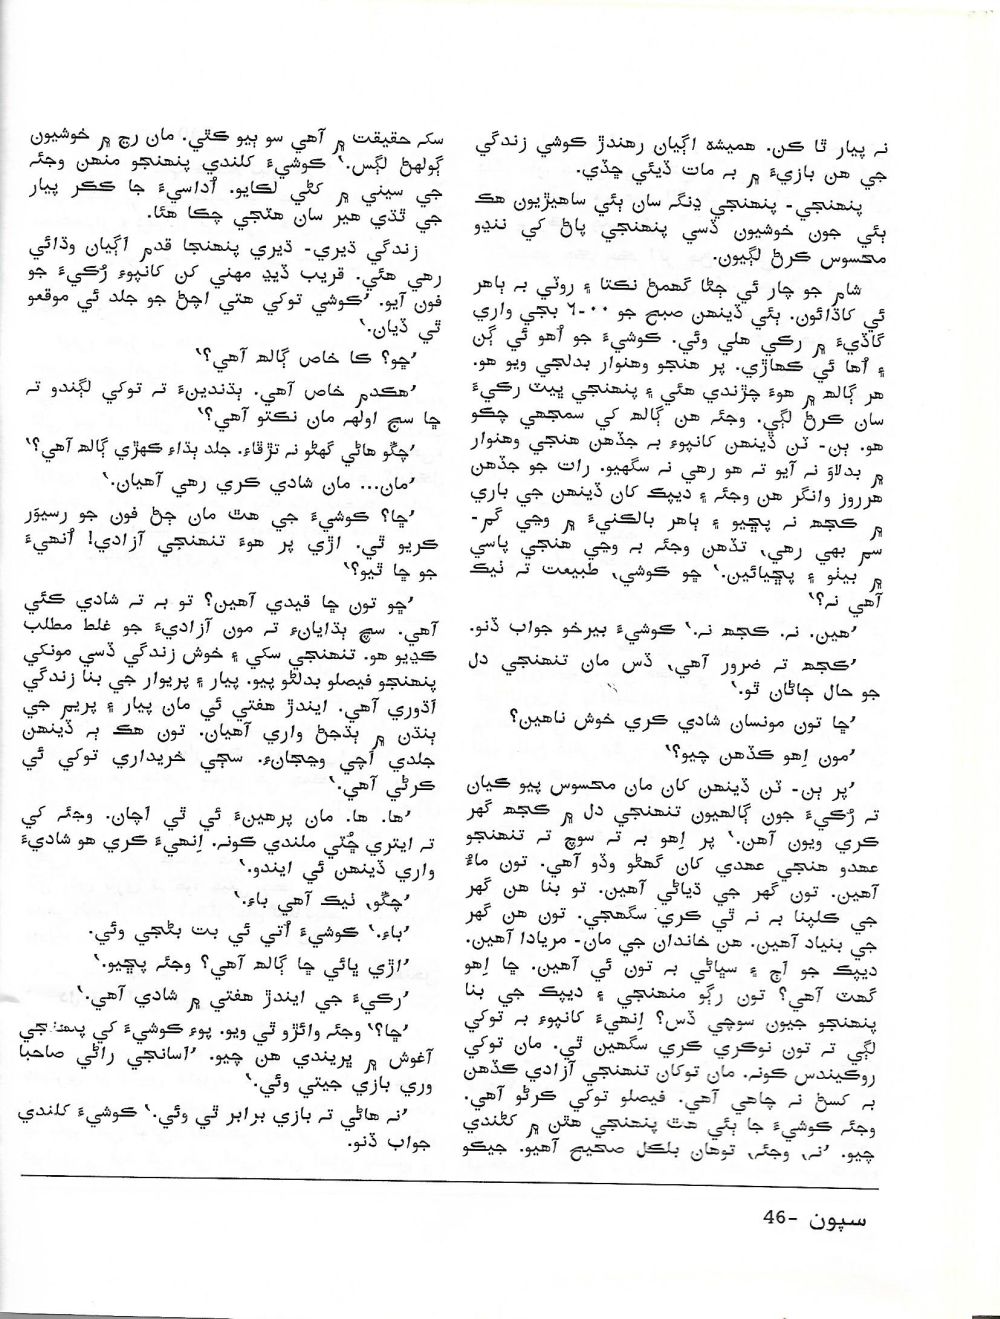 نہ پيار ٿا ڪن. هميشہ اڳيان رهندڙ ڪوشي زندگي
جي هن بازيءَ ۾ بہ مات ڏيئي ڇڏي.
پنهنجي- پنهنجي ڍنگہ سان ٻئي ساهيڙيون هڪ
ٻئي جون خوشيون ڏسي پنهنجي پاڻ کي ننڍو
محسوس ڪرڻ لڳيون.
شام جو چار ئي ڄڻا گهمڻ نڪتا ۽ روٽي بہ ٻاهر
ئي کاڌائون. ٻئي ڏينهن صبح جو ٠٠-٦ بجي واري
گاڏيءَ ۾ رڪي هلي وئي. ڪوشيءَ جو اُهو ئي ڳن
۽ اُها ئي ڪهاڙي. پر هنجو وهنوار بدلجي ويو هو.
هر ڳالھ ۾ هوءَ چڙندي هئي ۽ پنهنجي ڀيٽ رڪيءَ
سان ڪرڻ لڳي. وجئہ هن ڳالھ کي سمجهي چڪو
هو. ٻن- ٽن ڏينهن کانپوءِ بہ جڏهن هنجي وهنوار
۾ بدلاوَ نہ آيو تہ هو رهي نہ سگهيو. رات جو جڏهن
هرروز وانگر هن وجئہ ۽ ديپڪ کان ڏينهن جي باري
۾ ڪجھ نہ پڇيو ۽ ٻاهر بالڪنيءَ ۾ وڃي گم-
سم بهي رهي، تڏهن وجئہ بہ وڃي هنجي پاسي
۾ بيٺو ۽ پڇيائين.ʽ ڇو ڪوشي، طبيعت تہ ٺيڪ
آهي نہ؟ʽ
ʼهين. نہ. ڪجھ نہ.ʽ ڪوشيءَ بيرخو جواب ڏنو.
ʼڪجھ تہ ضرور آهي، ڏس مان تنهنجي دل
جو حال ڄاڻان ٿو.ʽ
ʼڇا تون مونسان شادي ڪري خوش ناهين؟
ʼمون اِهو ڪڏهن چيو؟ʽ
ʼپر ٻن- ٽن ڏينهن کان مان محسوس پيو ڪيان
تہ رُڪيءَ جون ڳالهيون تنهنجي دل ۾ ڪجھ گهر
ڪري ويون آهن.ʽ پر اِهو بہ تہ سوچ تہ تنهنجو
عهدو هنجي عهدي کان گهڻو وڏو آهي. تون ماءُ
آهين. تون گهر جي ڌياڻي آهين. تو بنا هن گهر
جي ڪلپنا بہ نہ ٿي ڪري سگهجي. تون هن گهر
جي بنياد آهين. هن خاندان جي مان- مريادا آهين.
ديپڪ جو اڄ ۽ سڀاڻي بہ تون ئي آهين. ڇا اِهو
گهٽ آهي؟ تون رڳو منهنجي ۽ ديپڪ جي بنا
پنهنجو جيون سوچي ڏس؟ اِنهيءَ کانپوءِ بہ توکي
لڳي تہ تون نوڪري ڪري سگهين ٿي. مان توکي
روڪيندس ڪونہ. مان توکان تنهنجي آزادي ڪڏهن
بہ کسڻ نہ چاهي آهي. فيصلو توکي ڪرڻو آهي.
وجئہ ڪوشيءَ جا ٻئي هٿ پنهنجي هٿن ۾ کڻندي
چيو. ʼنہ، وجئہ، توهان بلڪل صحيح آهيو. جيڪو
سکہ حقيقت ۾ آهي سو ٻيو ڪٿي. مان رڃ ۾ خوشيون
ڳولهڻ لڳس.ʽ ڪوشيءَ کلندي پنهنجو منهن وجئہ
جي سيني ۾ کڻي لڪايو. اُداسيءَ جا ڪڪر پيار
جي ٿڌي هير سان هٽجي چڪا هئا.
زندگي ڌيري- ڌيري پنهنجا قدم اڳيان وڌائي
رهي هئي. قريب ڏيڍ مهني کن کانپوءِ رُڪيءَ جو
فون آيو. ʼڪوشي توکي هتي اچڻ جو جلد ئي موقعو
ٿي ڏيان.ʽ
ʼڇو؟ ڪا خاص ڳالھ آهي؟ʽ
ʼهڪدم خاص آهي. ٻڌندينءَ تہ توکي لڳندو تہ
ڇا سج اولهہ مان نڪتو آهي؟ʽ
ʼچڱو هاڻي گهڻو نہ تڙڦاءِ. جلد ٻڌاءِ ڪهڙي ڳالھ آهي؟ʽ
ʼمان... مان شادي ڪري رهي آهيان.ʽ
ʼڇا؟ ڪوشيءَ جي هٿ مان ڄڻ فون جو رسيوَر
ڪريو ٿي. اڙي پر هوءَ تنهنجي آزادي! اُنهيءَ
جو ڇا ٿيو؟ʽ
ʼڇو تون ڇا قيدي آهين؟ تو بہ تہ شادي ڪئي
آهي. سچ ٻڌايانءِ تہ مون آزاديءَ جو غلط مطلب
ڪڍيو هو. تنهنجي سکي ۽ خوش زندگي ڏسي مونکي
پنهنجو فيصلو بدلڻو پيو. پيار ۽ پريوار جي بنا زندگي
اڌوري آهي. ايندڙ هفتي ئي مان پيار ۽ پريم جي
ٻنڌن ۾ ٻڌجڻ واري آهيان. تون هڪ ٻہ ڏينهن
جلدي اچي وڃجانءِ. سڄي خريداري توکي ئي
ڪرڻي آهي.ʽ
ʼها. ها. مان پرهينءَ ئي ٿي اچان. وجئہ کي
تہ ايتري ڇُٽي ملندي ڪونہ. اِنهيءَ ڪري هو شاديءَ
واري ڏينهن ئي ايندو.ʽ
ʼچڱو، ٺيڪ آهي باءِ.ʽ
ʼباءِ.ʽ ڪوشيءَ اُتي ئي بت بڻجي وئي.
ʼاڙي ڀائي ڇا ڳالھ آهي؟ وجئہ پڇيو.ʽ
ʼرڪيءَ جي ايندڙ هفتي ۾ شادي آهي.ʽ
ʼڇا؟ʽ وجئہ وائڙو ٿي ويو. پوءِ ڪوشيءَ کي پنهنجي
آغوش ۾ ڀريندي هن چيو. ʼاسانجي راڻي صاحبا
وري بازي جيتي وئي.ʽ
ʼنہ هاڻي تہ بازي برابر ٿي وئي.ʽ ڪوشيءَ کلندي
جواب ڏنو.
سپون -46